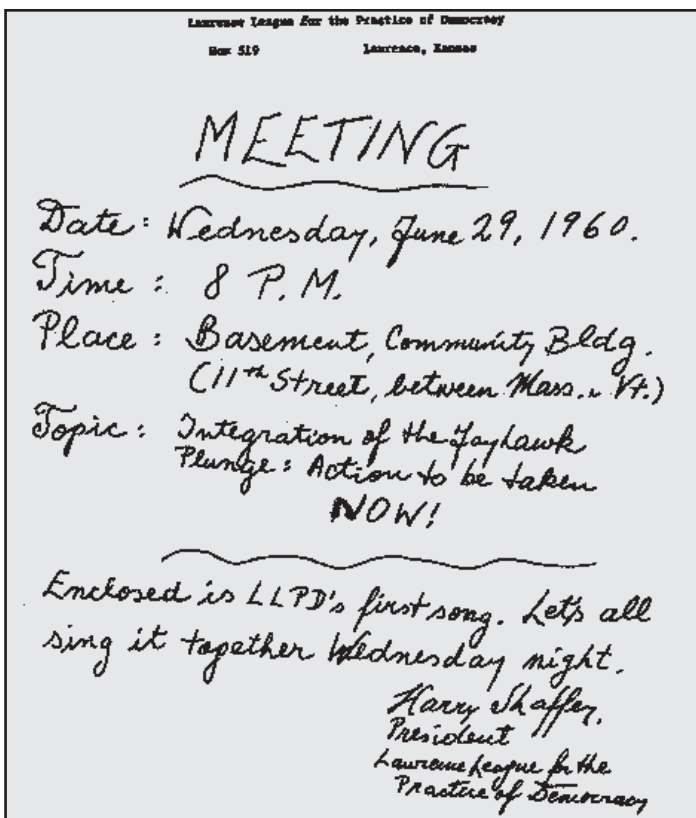 Lawrence League for the Practice of Democracy
Box 519 Lawrence, Kansas
MEETING
Date: Wednesday, June 29, 1960.
Time: 8 P.M.
Place: Basement, Community Bldg.
(11th Street, between Mass. & Vt.)
Topic: Integration of the Jayhawk
Plunge: Action to be taken
NOW!
Enclosed is LLPD's first song. Let's all
sing it together Wednesday night.
Harry Shaffer,
President
Lawrence League for the
Practice of Democracy